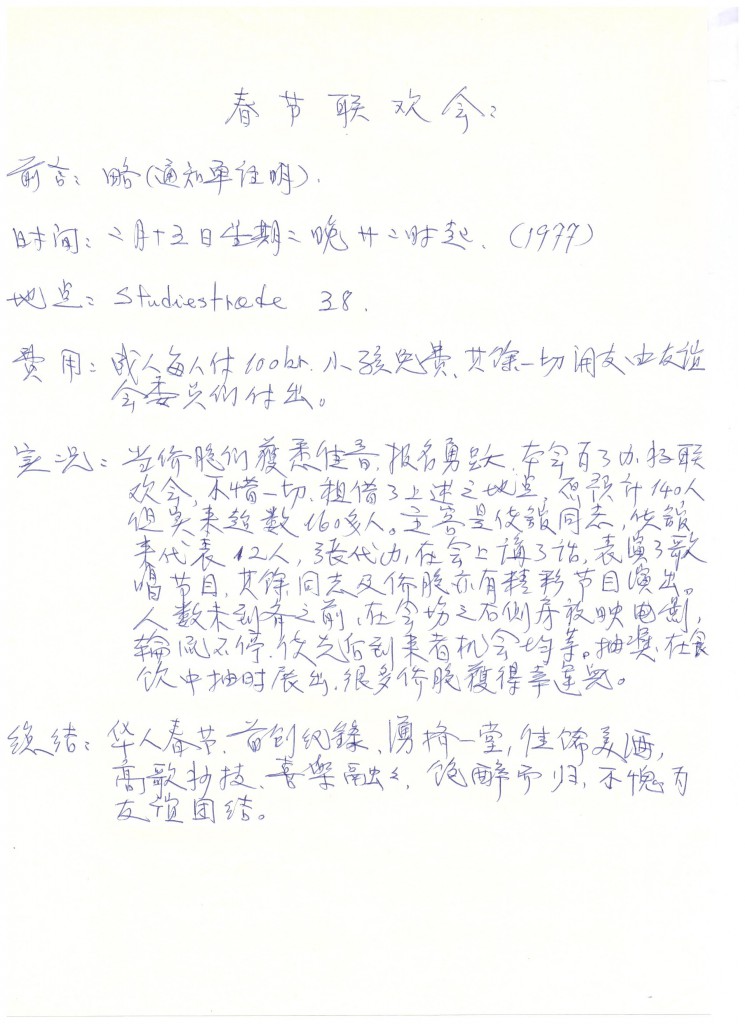 春节联欢会:
前言: 略(通知单证明).
时间: 二月十五日星期二晚廿二时起. (1977)
地点: Studiestræde 38.
费用: 成人每人付100kr. 小孩免费, 其馀一切用支由友谊
会委员们付出。
实况: 当侨胞们獲悉佳音, 报名勇跃, 本会为了办好联
欢会, 不惜一切, 租借了上述之地点, 原预计140人
但实来超数160多人。主客是使館同志, 使館
来代表12人, 張代办, 在会上講了话, 表演了歌
唱节目, 其馀同志及侨胞亦有精彩节目演出。
人数未到齐之前, 在会场之右侧房放映电影,
輪流不停, 使先后到来者机会均等。抽奖, 在食
饮中抽时展出, 很多侨胞獲得幸運奖。
總结: 华人春节, 首创纪録, 湧擠一堂, 佳俙美酒,
高歌妙技, 喜樂融々, 饱醉而归, 不愧为
友谊团结。